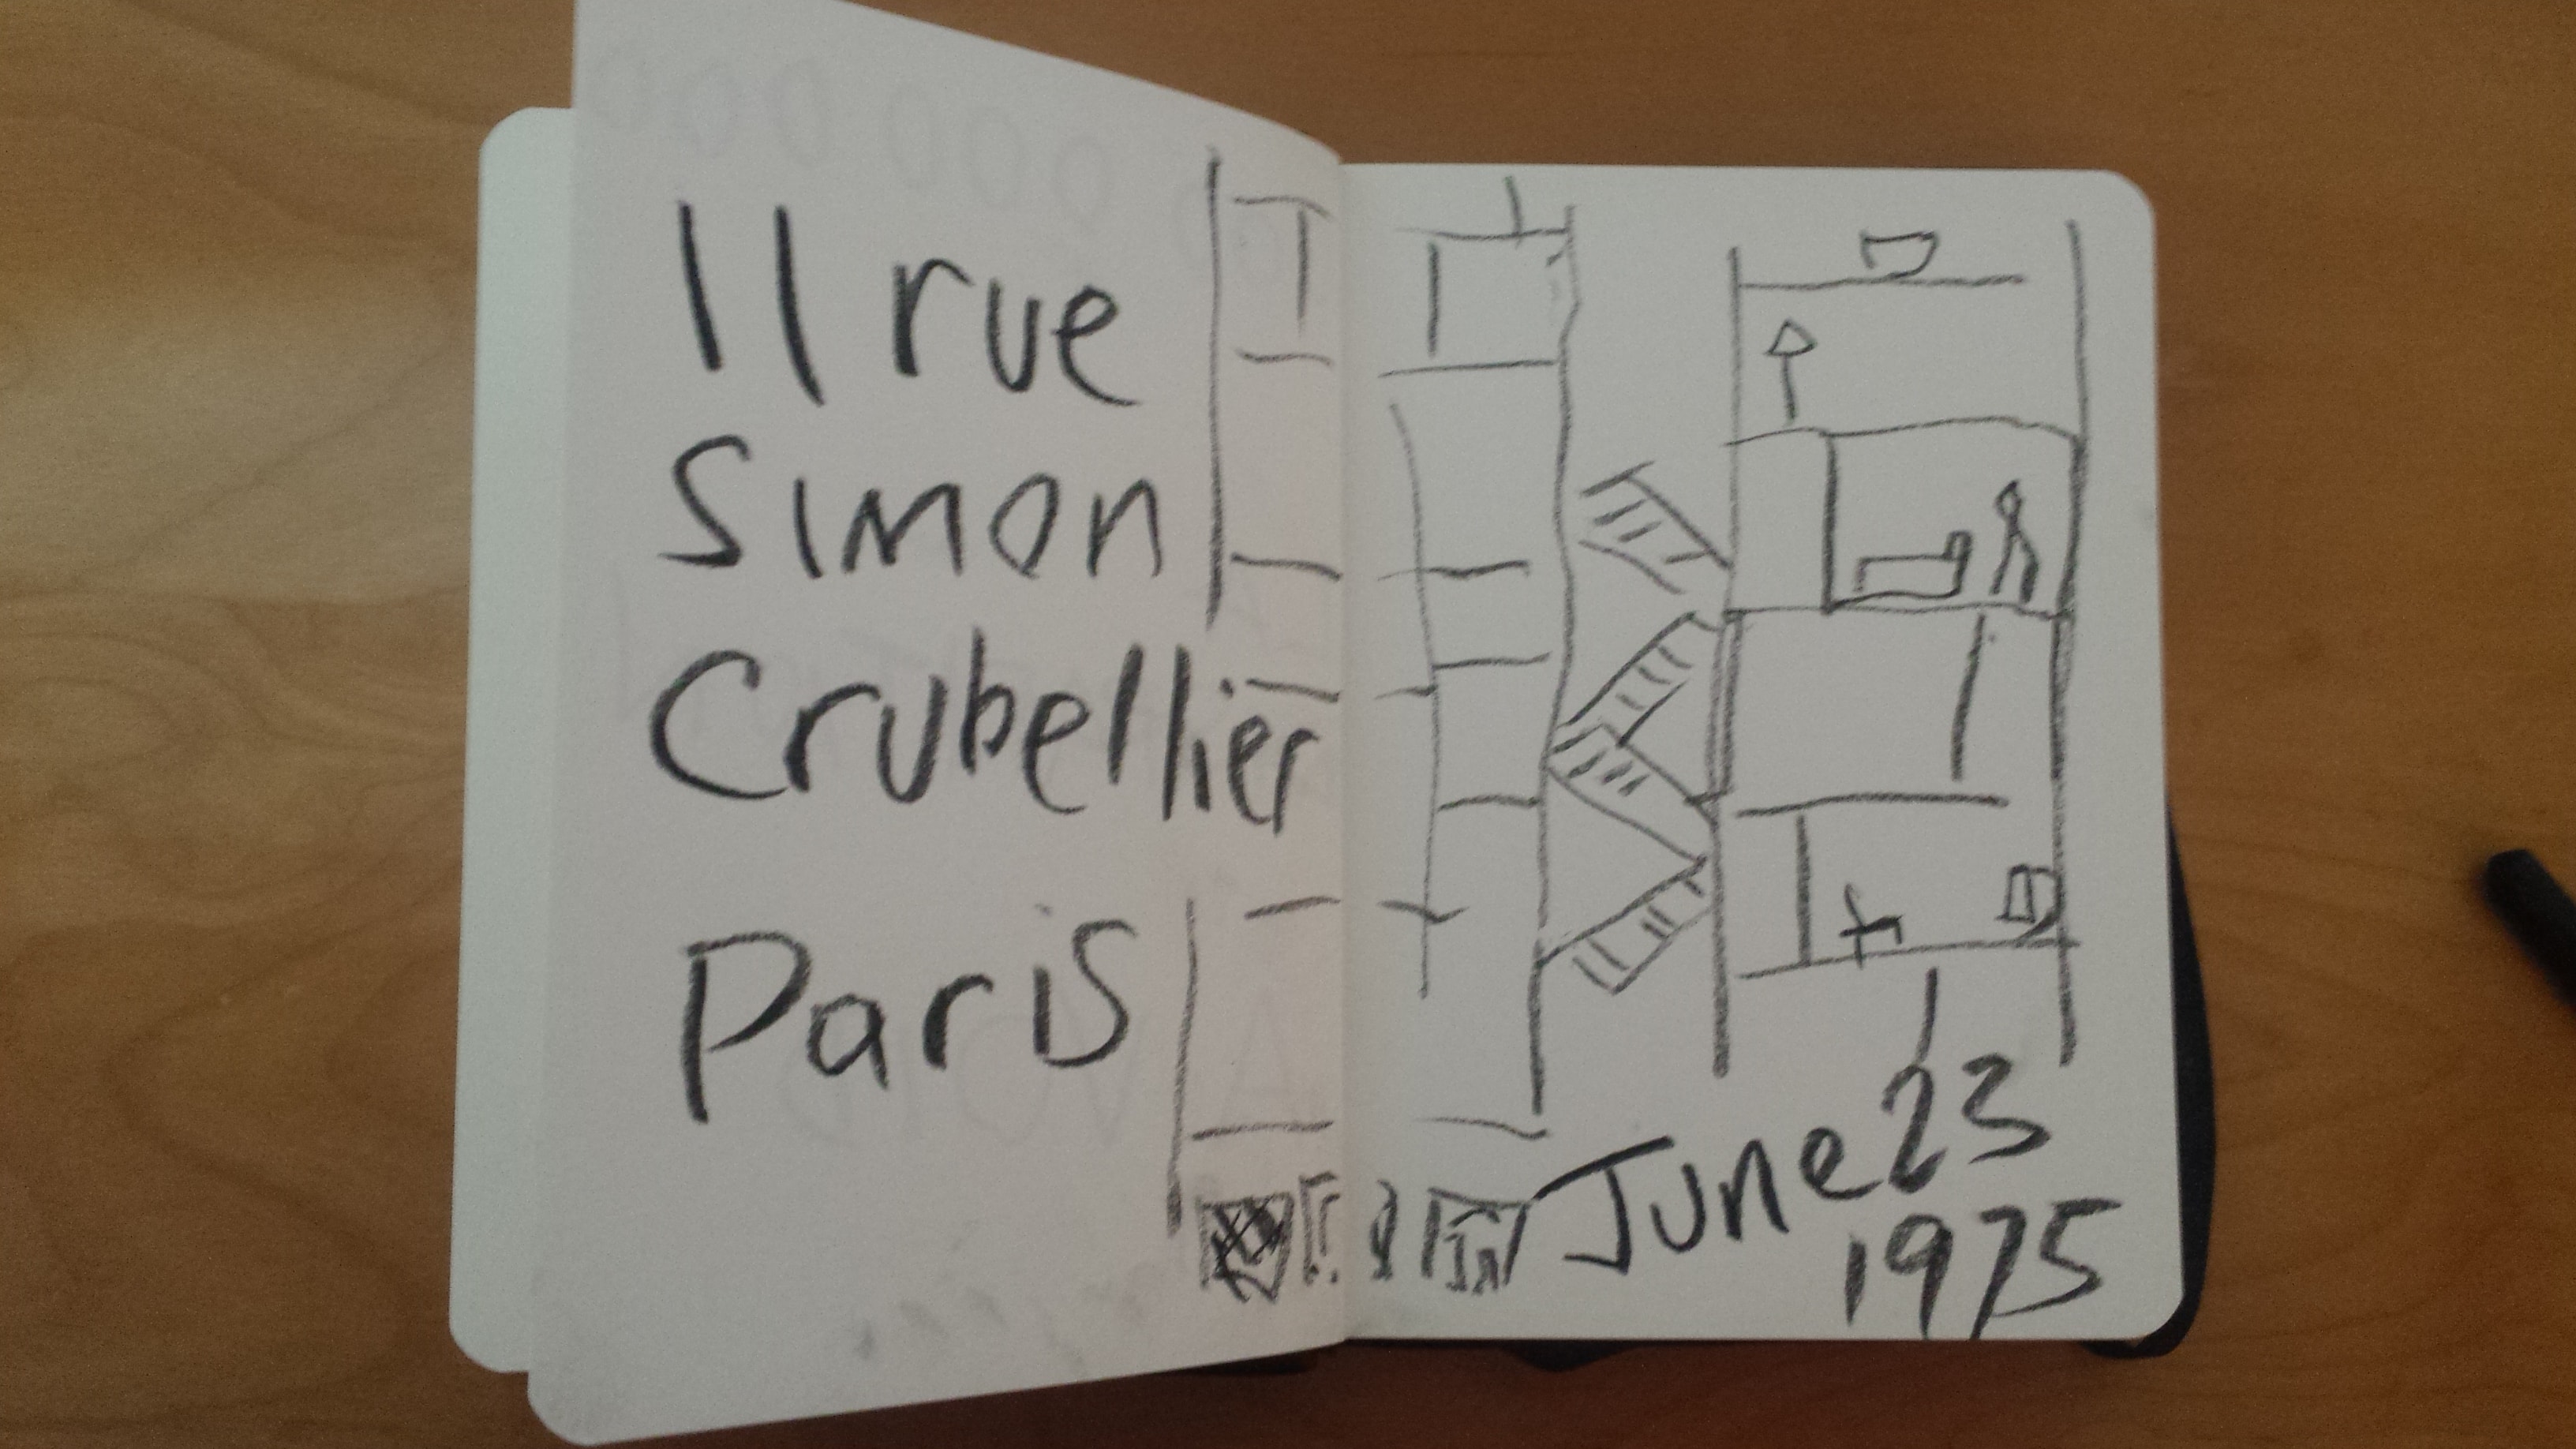 11 rue
Simon
Crubellier
Paris
June 23
1975